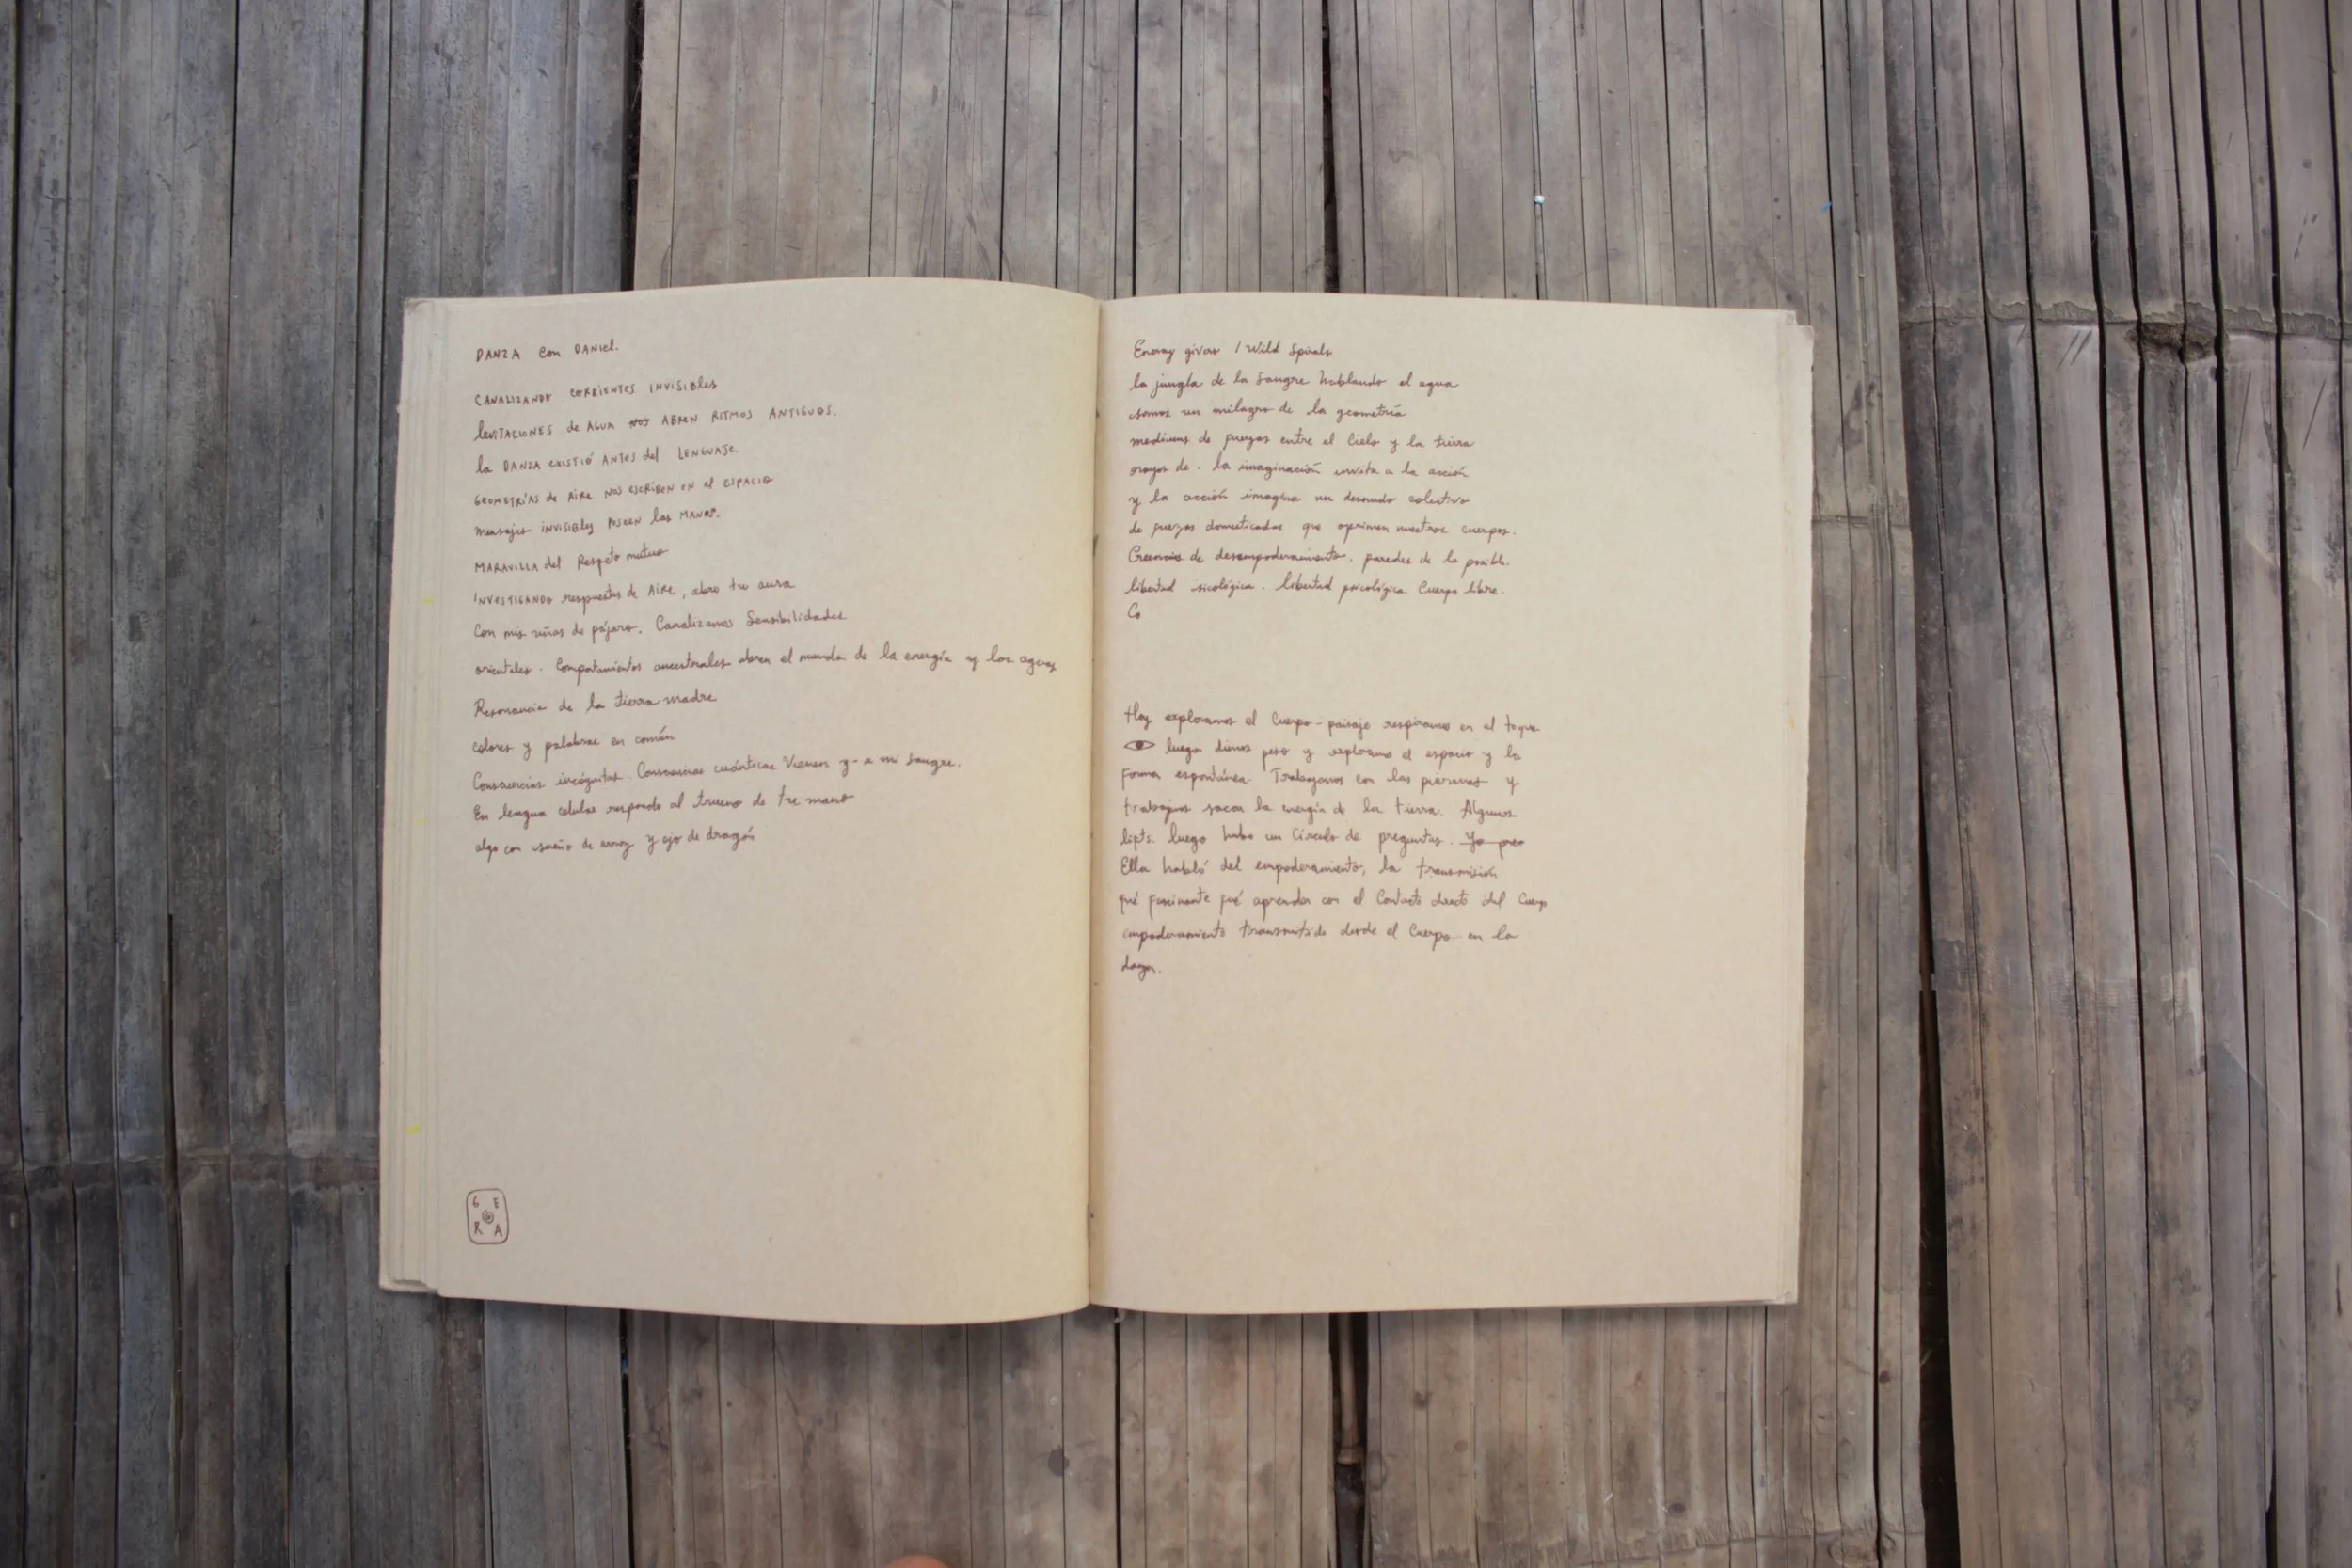 DANZA con DANIEL.
CANALIZANDO CORRIENTES INVISIBLES
levITACIONES de AGUA nos ABREN RITMOS ANTIGUOS.
la DANZA EXISTIÓ ANTES del LENGUAJE.
GEOMETRÍAS de AIRE NOS ESCRIBEN EN el ESPACIO
mensajes INVISIBLES POSEEN las MANOS.
MARAVILLA del Respeto mutuo
INVESTIGANDO respuestas de AIRE, abro tu aura
Con mis uñas de pájaro. Canalizamos Sensibilidades
orientales. Comportamientos ancestrales abren el mundo de la energía y las aguas
Resonancia de la tierra madre
colores y palabras en común
Consciencias incógnitas. Consciencias cuánticas Vienen y a mi sangre.
En lengua celular respondo al trueno de tu mano
algo con sueño de arroz y ojo de dragón
G E
R A
Energy givers / Wild Spirals
la jungla de la sangre hablando el agua
somos un milagro de la geometría
mediums de fuerzas entre el Cielo y la tierra
de. la imaginación invita a la acción
y la acción imagina un desnudo colectivo
de fuerzas domesticadas que oprimen nuestros cuerpos.
Creencias de desempoderamiento. paredes de lo posible.
libertad sicológica. libertad psicológica. Cuerpo libre.
Co
Hoy exploramos el Cuerpo-paisaje respiramos en el toque
luego dimos peso y exploramos el espacio y la
forma espontánea. Trabajamos con las piernas y
trabajamos sacar la energía de la tierra. Algunos
lifts. luego hubo un Círculo de preguntas. Yo pre
Ella habló del empoderamiento, la transmisión
qué fascinante fué aprender con el Contacto directo del Cuerpo
empoderamiento transmitido desde el Cuerpo en la